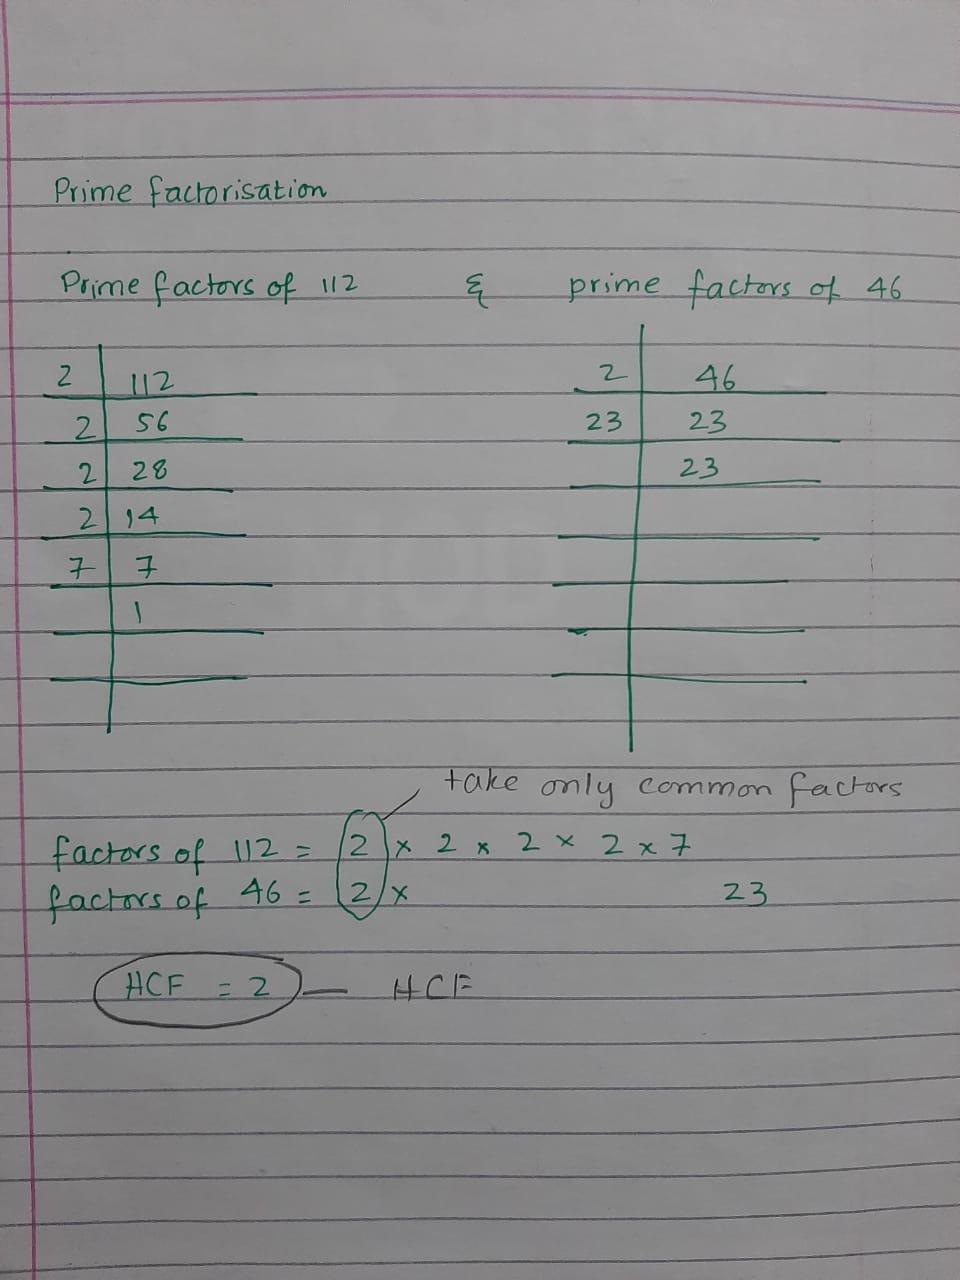 Prime factorisation
Prime factors of 112 & prime factors of 46
2 112 2 46
2 56 23 23
2 28 23
2 14
7 7
1
take only common factors
factors of 112 = 2 x 2 x 2 x 2 x 7
factors of 46 = 2 x 23
HCF = 2 — HCF